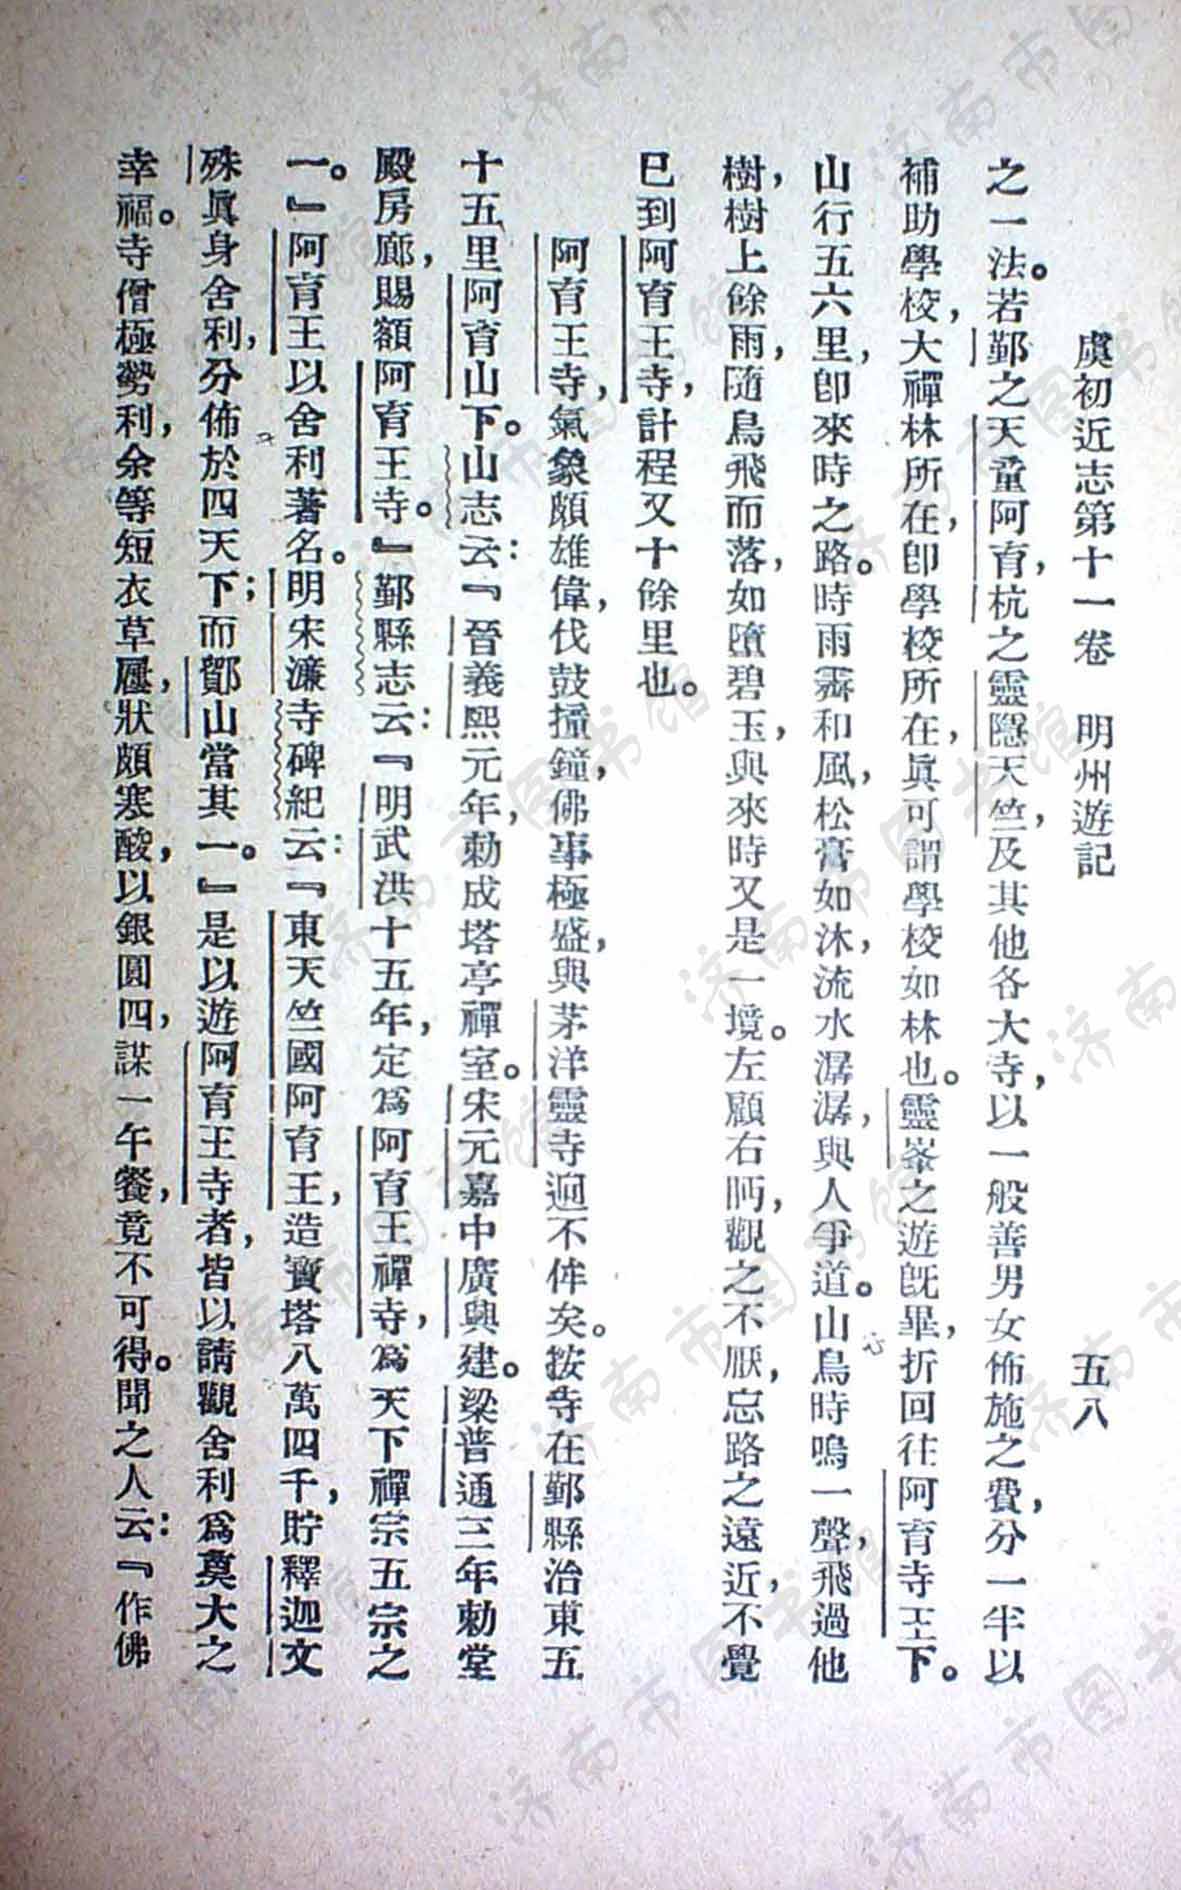 虞初近志第十一卷　明州遊記　五八
之一法。若鄞之天童阿育，杭之靈隱天竺，及其他各大寺，以一般善男女佈施之費，分一半以
補助學校，大禪林所在，卽學校所在，眞可謂學校如林也。靈峯之遊旣畢，折回往阿育寺王下。
山行五六里，卽來時之路。時雨霽和風，松膏如沐，流水潺潺，與人爭道。山鳥時鳴一聲，飛過他
樹，樹上餘雨，隨鳥飛而落，如墮碧玉，與來時又是一境。左顧右眄，觀之不厭，忘路之遠近，不覺
已到阿育王寺，計程又十餘里也。
阿育王寺，氣象頗雄偉，伐鼓撞鐘，佛事極盛，與茅洋靈寺迥不侔矣。按寺在鄞縣治東五
十五里阿育山下。山志云：『晉義熙元年，勅成塔亭禪室。宋元嘉中廣興建。梁普通三年勅堂
殿房廊，賜額阿育王寺。』鄞縣志云：『明武洪十五年，定爲阿育王禪寺，爲天下禪宗五宗之
一。』阿育王以舍利著名。明宋濂寺碑紀云：『東天竺國阿育王，造寶塔八萬四千，貯釋迦文
殊眞身舍利，分佈於四天下；而鄮山當其一。』是以遊阿育王寺者，皆以請觀舍利爲莫大之
幸福。寺僧極勢利，余等短衣草屨，狀頗寒酸，以銀圓四，謀一午餐，竟不可得。聞之人云：『作佛